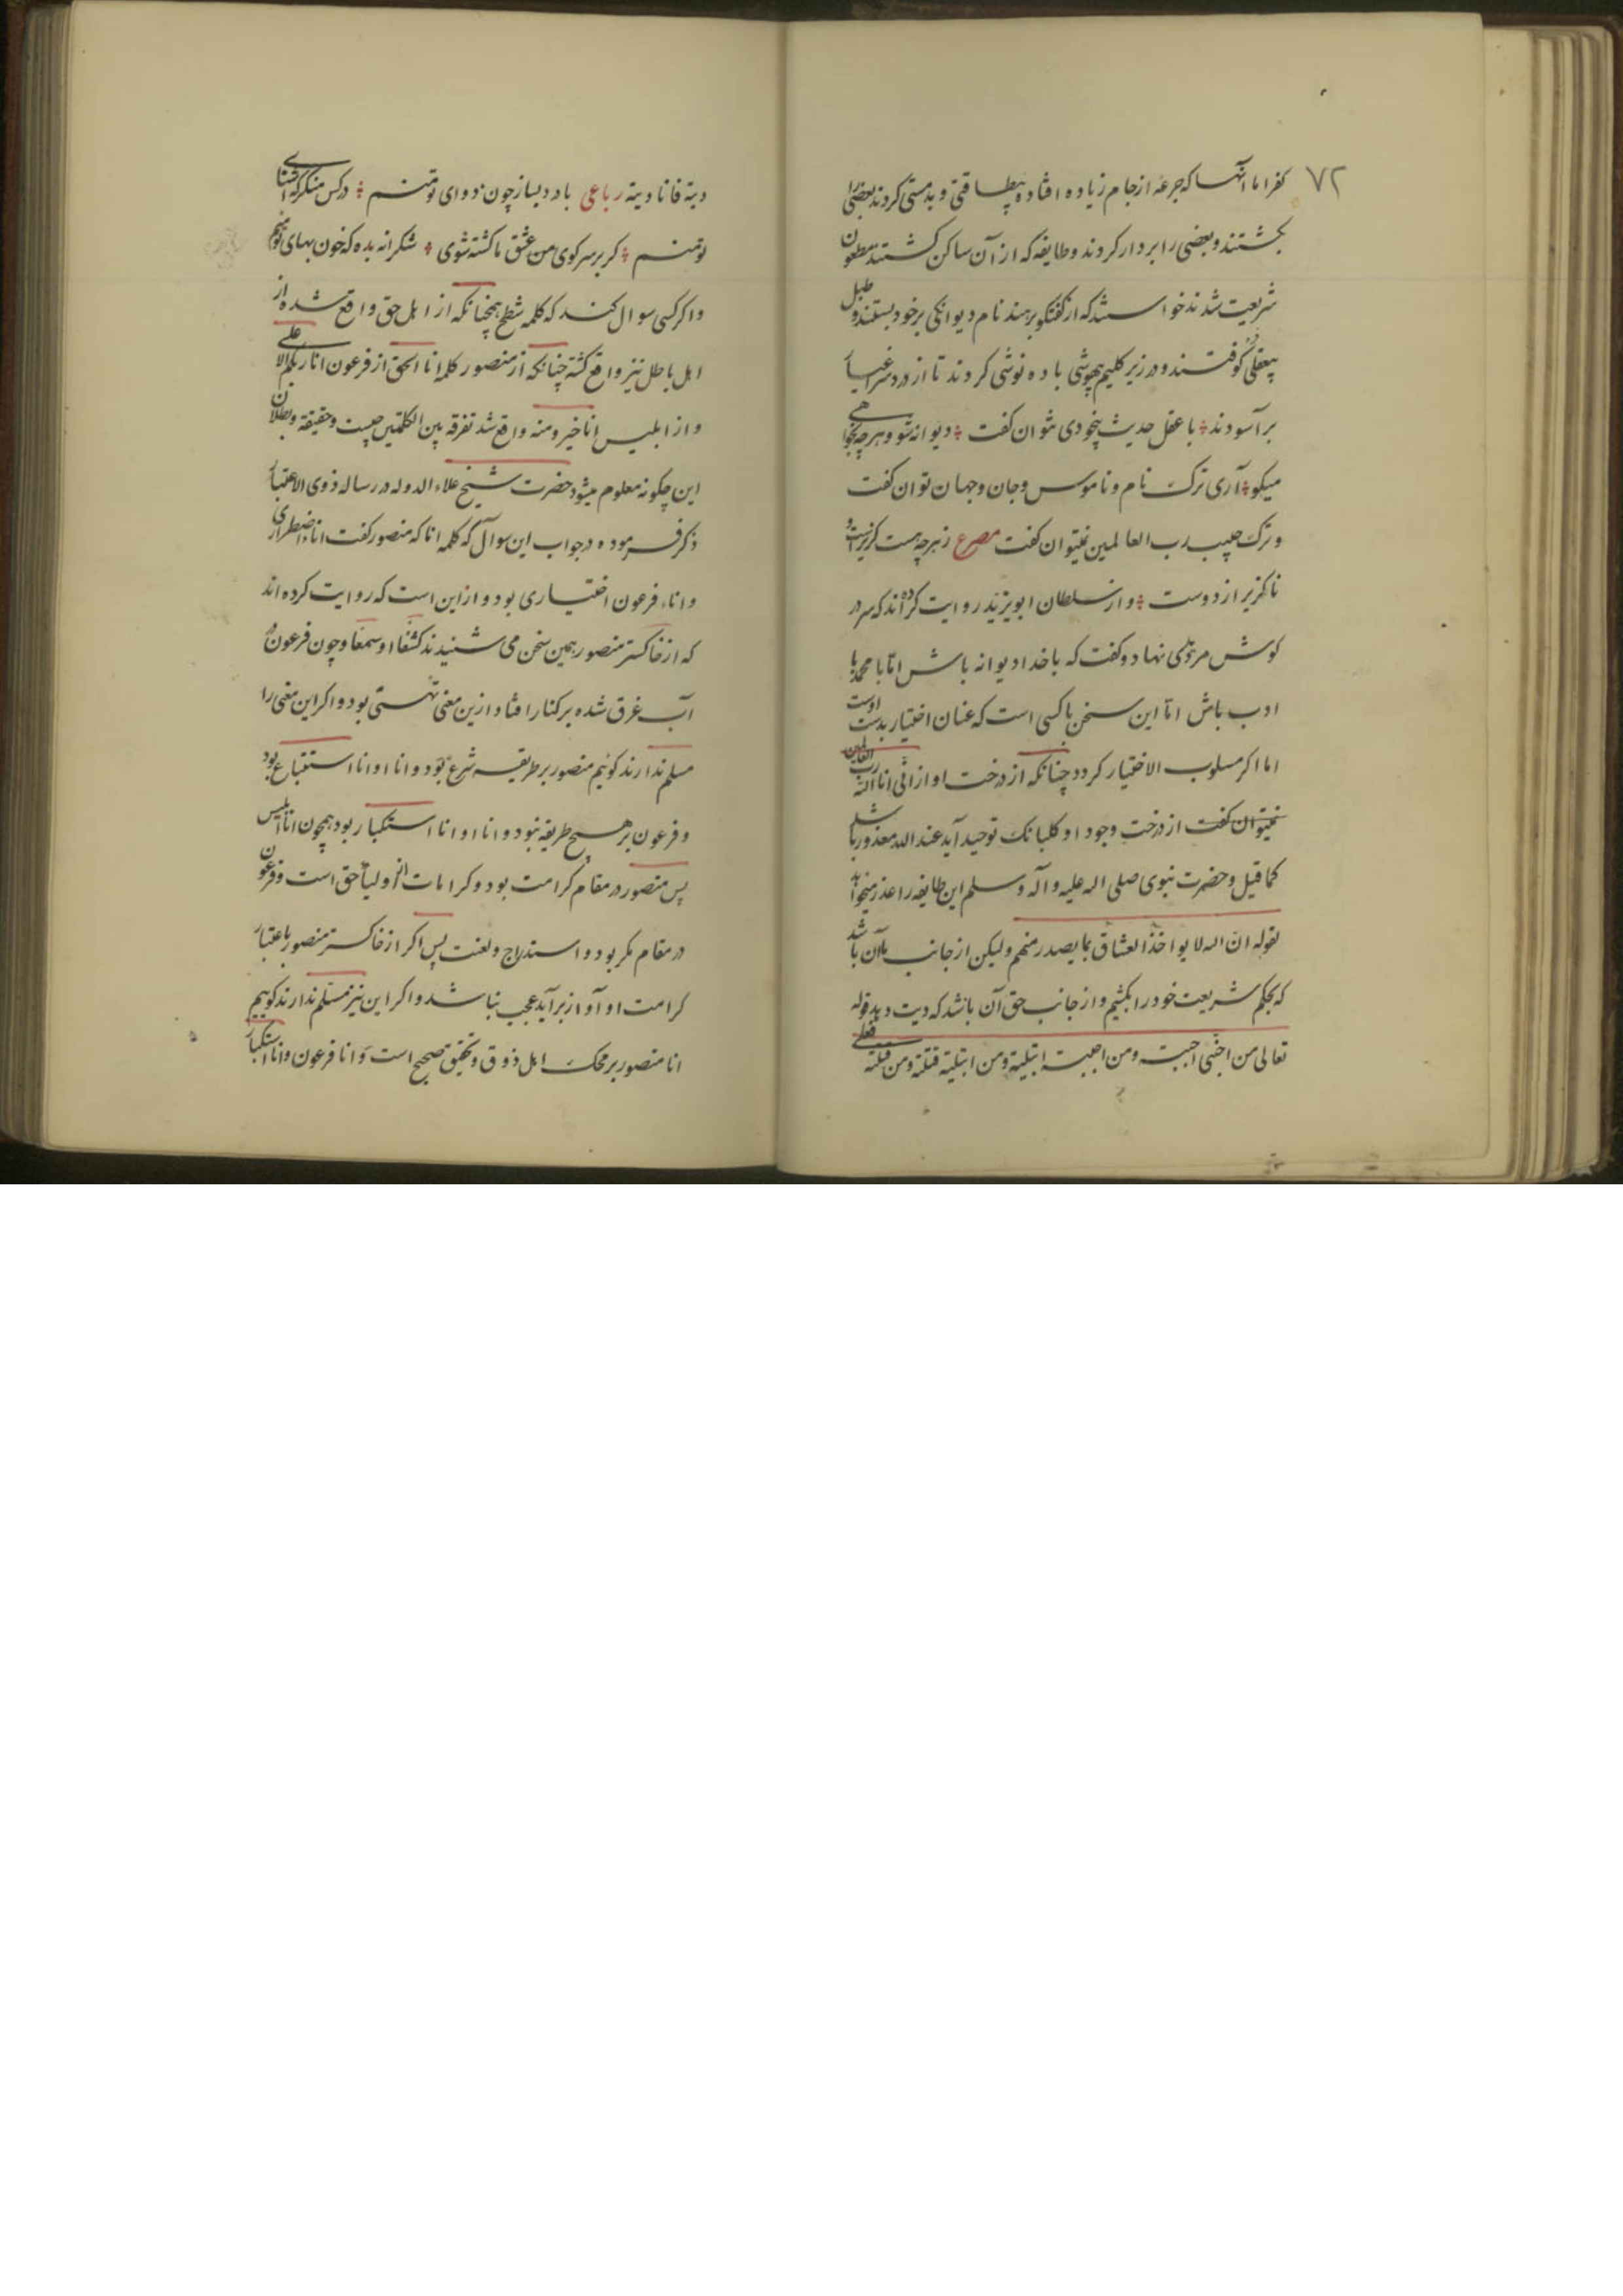 ۷۲
کفر اما آنها که جرعه از جام زیاده افتاده بیطاقتی و بدمستی کردند بعضی را
بکشتند و بعضی را بر دار کردند و طایفه که از آن ساکن کشتند مطعون
شریعت شدند خواستند که از کفتکو برهند نام دیوانکی بر خود بستند و طبل
بیعقلی کوفتند و در زیر کلیم بیهوشی باده نوشی کردند تا از دردسر اغیار
برآسودند با عقل حدیث بیخودی نتوان کفت دیوانه شو و هرچه میخواهی
میکو آری ترک نام و ناموس و جان و جهان توان کفت
و ترک حبیب رب العالمین نمیتوان کفت مصرع ز هرچه هست کزیر است و
ناکزیر از دوست و از سلطان ابویزید روایت کرده اند که سر در
کوش مریدی نهاد و کفت که با خدا دیوانه باش اما با محمد با
ادب باش اما این سخن با کسی است که عنان اختیار بدست اوست
اما اکر مسلوب الاختیار کردد چنانکه از درخت او از انی انا الله رب العالمین
نمیتوان کفت از درخت وجود او کلبانک توحید آید عند الله معذور باشد
کما قیل و حضرت نبوی صلی الله علیه و آله و سلم این طایفه را عذر میخواهد
بقوله ان الله لا یواخذ العشاق بما یصدر منهم ولیکن از جانب ما آن باشد
که بحکم شریعت خود را بکشیم و از جانب حق آن باشد که دیت دهد قوله
تعالی من احبنی احببته و من احببته ابتلیته و من ابتلیته قتلته و من قتلته فعلی
دیته فانا دیته رباعی با درد بساز چون دوای تو منم در کس منکر که آشنای
تو منم کر بر سر کوی من عشق ما کشته شوی شکرانه بده که خون بهای تو منم
و اکر کسی سوال کند که کلمه شطح همچنانکه از اهل حق واقع شده از
اهل باطل نیز واقع کشته چنانکه از منصور کلمه انا الحق از فرعون انا ربکم الاعلی
و از ابلیس انا خیر منه واقع شد تفرقه بین الکلمتین چیست و حقیقة و بطلان
این چکونه معلوم میشود حضرت شیخ علاء الدوله در رساله ذوی الاعتبار
ذکر فرموده در جواب این سوال که کلمه انا که منصور کفت اناء اضطراری
و اناء فرعون اختیاری بود و از این است که روایت کرده اند
که از خاکستر منصور همین سخن می شنیدند کشفا او سمعا و چون فرعون در
آب غرق شده بر کنار افتاد ازین معنی تهستی بود و اکر این معنی را
مسلم ندارند کوئیم منصور بر طریقه شرع بود و انا او انا استتباع بود
و فرعون بر هیچ طریقه نبود و انا او انا استکبار بود همچون انا ابلیس
پس منصور در مقام کرامت بود و کرامات از اولیا حق است و فرعون
در مقام مکر بود و استدراج و لعنت پس اکر از خاکستر منصور باعتبار
کرامت او آواز برآید عجب نباشد و اکر این نیز مسلم ندارند کوییم
انا منصور بر محک اهل ذوق و تحقیق صحیح است و انا فرعون و انا استکبار